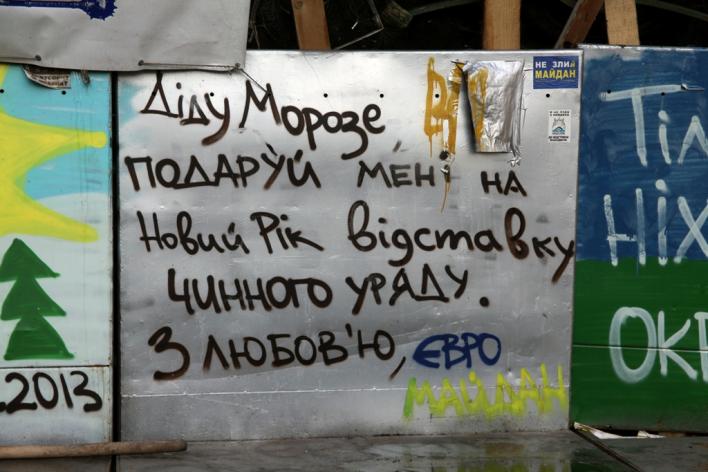 Діду Морозе
ПОДАРУЙ МЕНІ НА
Новий Рік відставку
чинного уряду.
З ЛЮБОВ'Ю, ЄВРО
МАЙДАН
НЕ ЗЛИЙ
МАЙДАН
.2013
Тіл
Ніх
ОКР